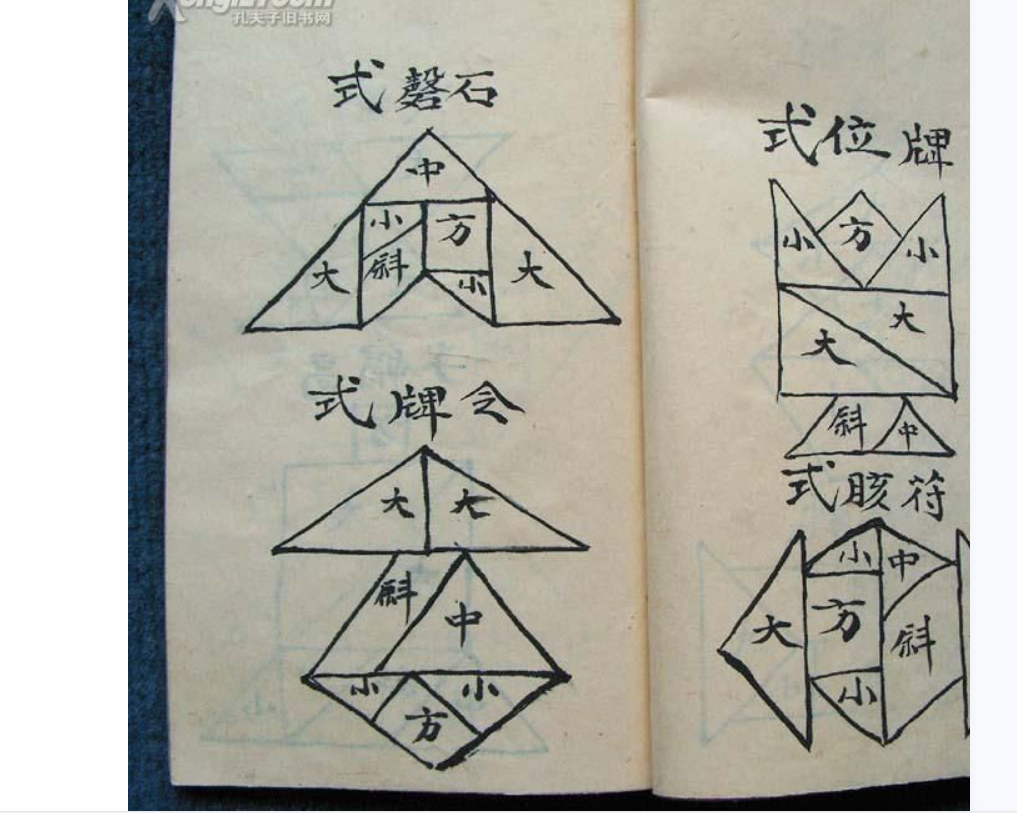 孔夫子旧书网
牌位式
小方小
大
大
中斜
符胲式
中小
斜方大
小
石磬式
中
方小
大小斜大
令牌式
大大
中斜
小小
方